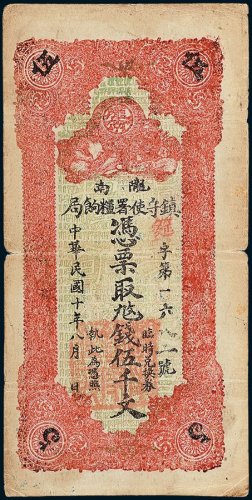 伍 伍
隴南
鎮守使署糧餉局
字第一六一號
臨時兌換券
憑票取錢伍千文
執此為憑照
中華民國十年八月 日
5 5